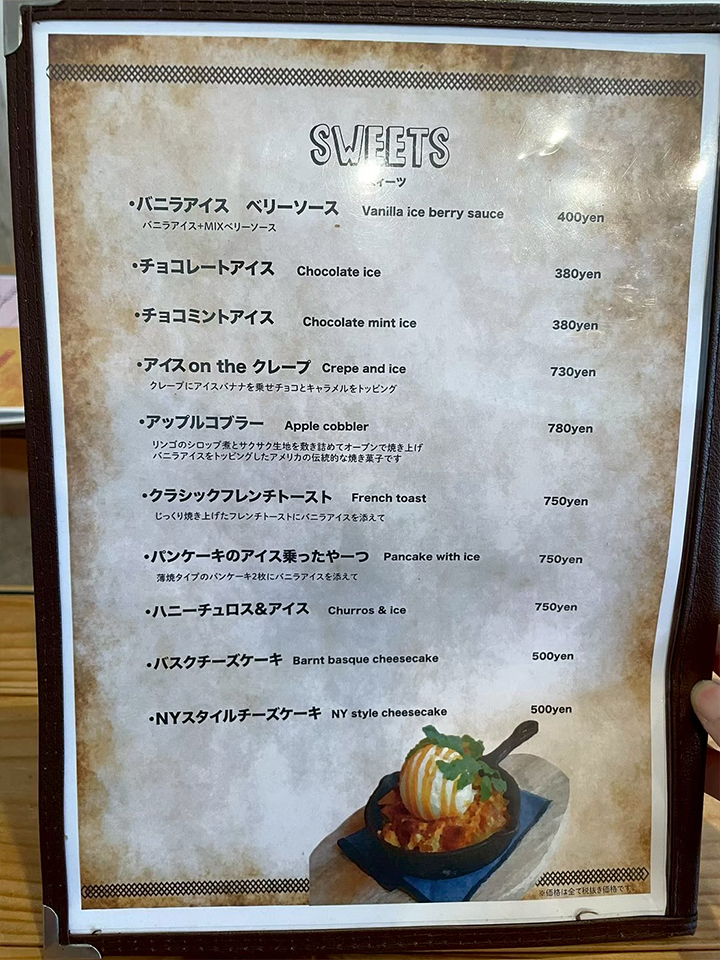 SWEETS
スイーツ
・バニラアイス ベリーソース Vanilla ice berry sauce 400yen
バニラアイス+MIXベリーソース
・チョコレートアイス Chocolate ice 380yen
・チョコミントアイス Chocolate mint ice 380yen
・アイスon the クレープ Crepe and ice 730yen
クレープにアイスバナナを乗せチョコとキャラメルをトッピング
・アップルコブラー Apple cobbler 780yen
リンゴのシロップ煮とサクサク生地を敷き詰めてオーブンで焼き上げ
バニラアイスをトッピングしたアメリカの伝統的な焼き菓子です
・クラシックフレンチトースト French toast 750yen
じっくり焼き上げたフレンチトーストにバニラアイスを添えて
・パンケーキのアイス乗ったやーつ Pancake with ice 750yen
薄焼タイプのパンケーキ2枚にバニラアイスを添えて
・ハニーチュロス&アイス Churros & ice 750yen
・バスクチーズケーキ Barnt basque cheesecake 500yen
・NYスタイルチーズケーキ NY style cheesecake 500yen
※価格は全て税抜き価格です。